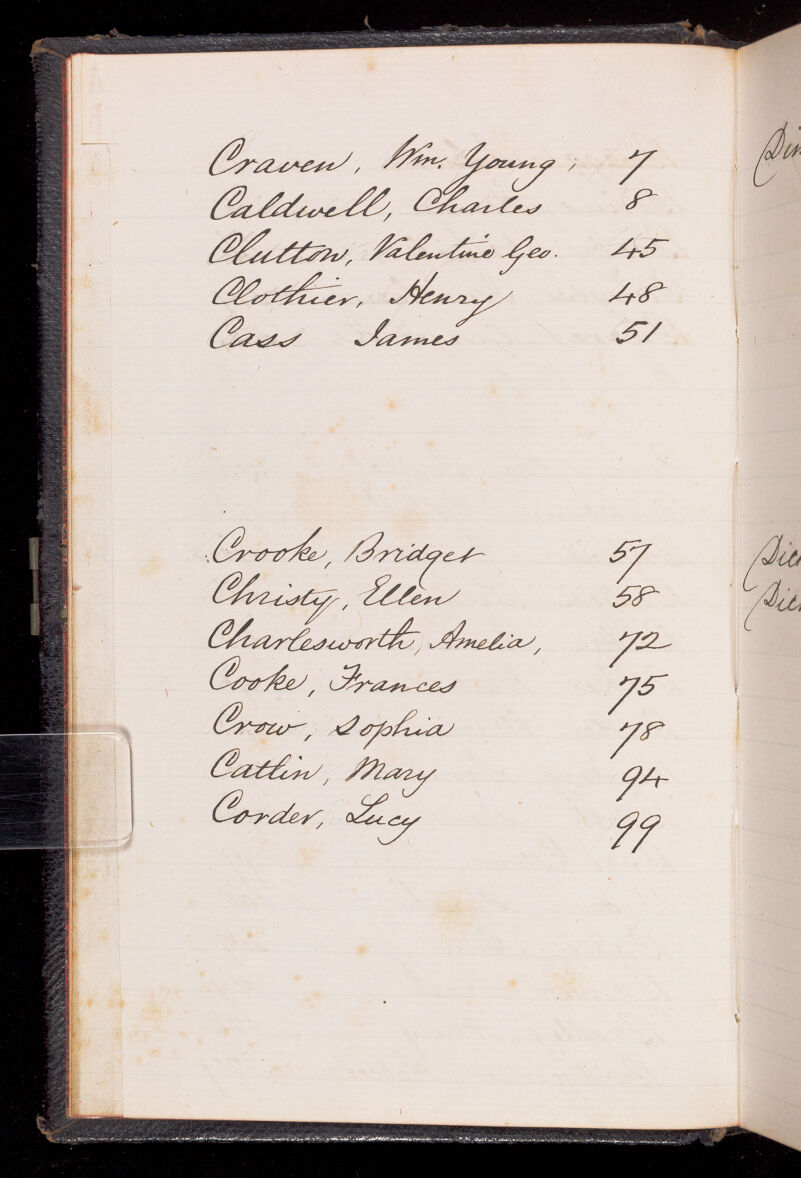 Craven, Wm. Young, 7
Caldwell, Charles 8
Clutton, Valentine Geo. 45
Clothier, Henry 48
Cass James 51
Crooke, Bridget 57
Christy, Ellen 58
Charlesworth, Amelia, 72
Cooke, Frances 75
Crow, Sophia 78
Catlin, Mary 94
Corder, Lucy 99